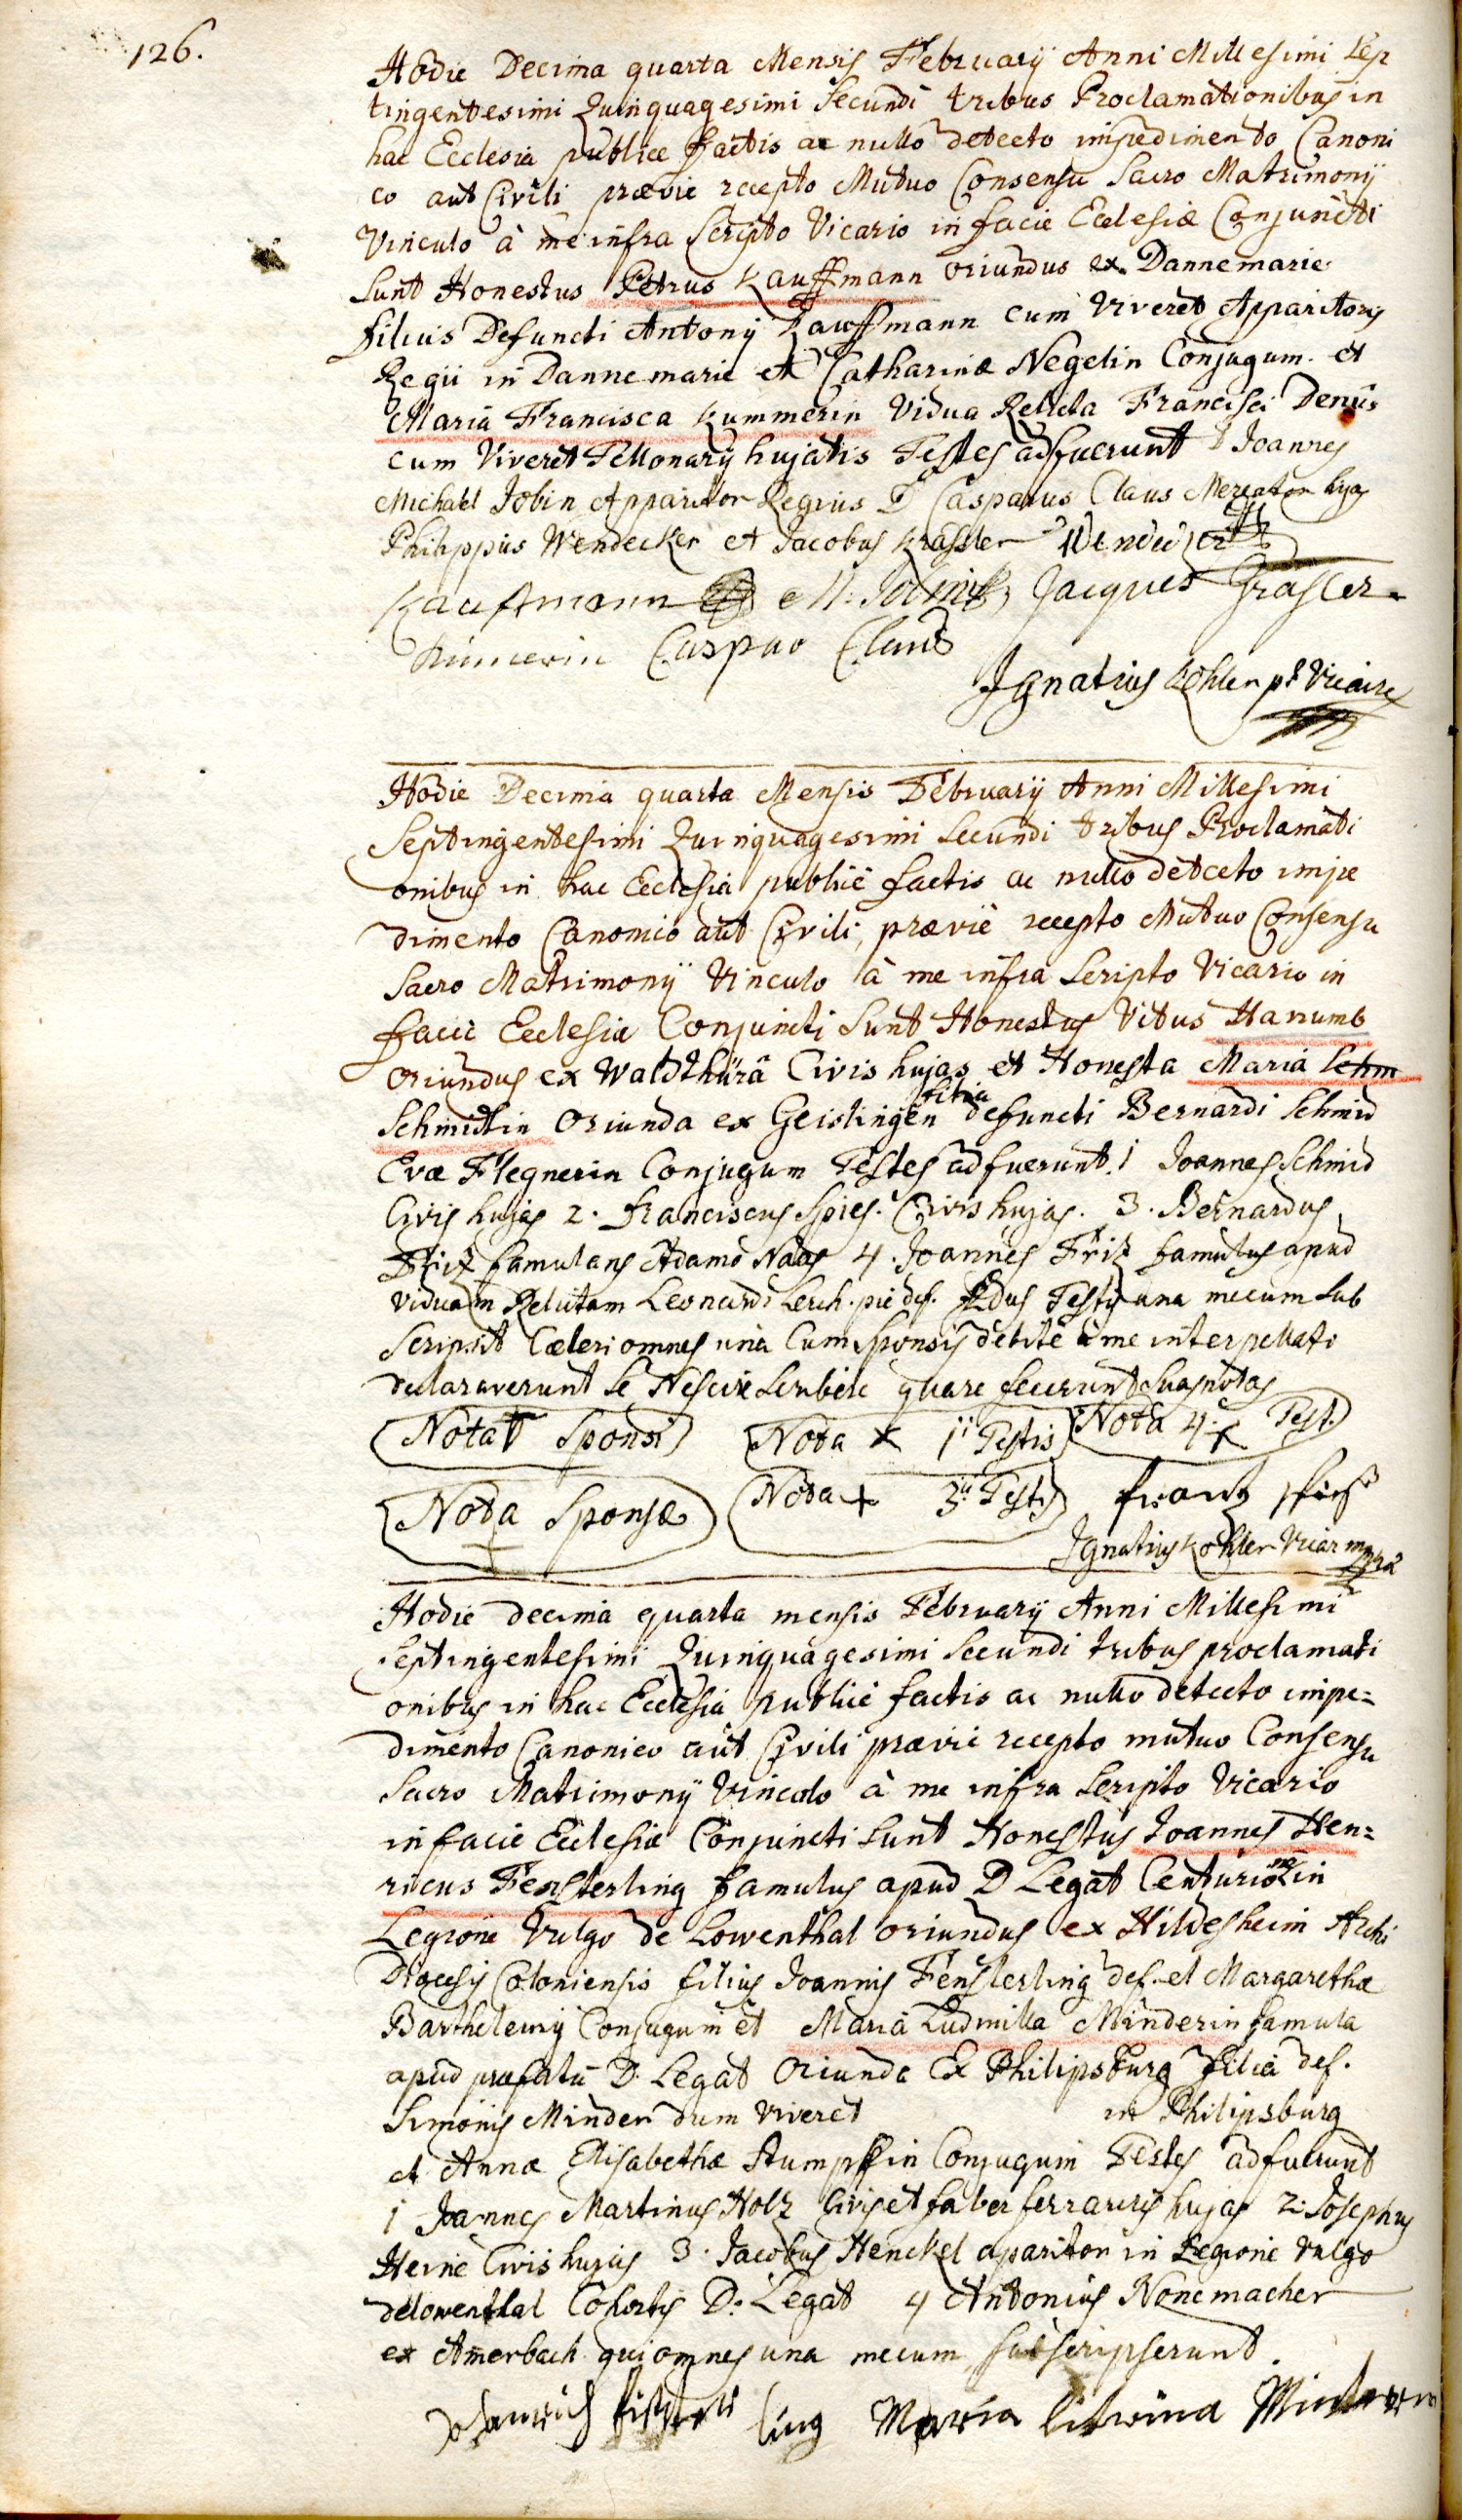 126.
Hodie Decima quarta Mensis Februarÿ Anni Millesimi Sep
tingentesimi Quinquagesimi Secundi tribus Proclamationibus in
hac Ecclesia publice factis ac nullo detecto impedimento Canoni
co aut Civili prævie recepto Mutuo Consensu Sacro Matrimonÿ
Vinculo à me infra Scripto Vicario in facie Ecclesiæ Conjuncti
Sunt Honestus Petrus Kauffmann oriundus ex Dannemarie
filius Defuncti Antonÿ Kauffmann cum Viveret Apparitoris
Regii in Dannemarie et Catharinæ Negelin Conjugum et
Maria Francisca Kummerin Vidua Relicta Francisci Denüs
cum Viveret Tellonarÿ hujatis Testes adfuerunt Joannes
Michael Jobin Apparitor Regius D Casparus Claus Mercator hujas
Philippus Wendecker et Jacobus Krassler Wendecker
Kauffmann M. Jobin Jacques Grasler
Kümerin Caspar Claus
Ignatius Kohler pt Vicaire
Hodie Decima quarta Mensis Februarÿ Anni Millesimi
Septingentesimi Quinquagesimi Secundi tribus Proclamati
onibus in hac Ecclesia publicè factis ac nullo detecto impe
dimento Canonico aut Civili, prævié recepto Mutuo Consensu
Sacro Matrimonÿ Vinculo à me infra Scripto Vicario in
facie Ecclesiæ Conjuncti Sunt Honestus Vitus Hanumb
Oriundus ex Waldthürâ Civis hujas et Honesta Maria Schm
Schmidtin Oriunda ex Geislingen filia defuncti Bernardi Schmid
Evæ Flegnerin Conjugum Testes adfuerunt. 1 Joannes Schmid
Civis hujas 2. franciscus Spies. Civis hujas. 3. Bernardus
Friz famulans Adamo Naas 4. Joannes Friz famulus apud
Viduam Relictam Leonardi Lerch. pie def. 2dus Testis una mecum Sub
Scripsit Cæteri omnes una Cum Sponsis debite à me interpellati
declaraverunt Se Nescire Scribere quare fecerunt Suas notas
Nota Sponsi Nota x 1i Testis Nota 4. x Test.
Nota Sponsæ Nota + 3ii Testis frantz spiess
Ignatius Kohler Vicar mpria
Hodie decima quarta mensis Februarÿ Anni Millesimi
Septingentesimi Quinquagesimi Secundi tribus proclamati
onibus in hac Ecclesia publicè factis ac nullo detecto impe=
dimento Canonico aut Civili prævie recepto mutuo Consensu
Sacro Matrimonÿ Vinculo à me infra Scripto Vicario
in facie Ecclesiæ Conjuncti Sunt Honestus Joannes Hen=
ricus Fensterling famulus apud D Legat Centurione in
Legione Vulgo de Lowenthal oriundus ex Hildesheim Archi
Diocesis Coloniensis filius Joannis Fensterling def. et Margarethæ
Barthelemÿ Conjugum et Maria Ludmilla Minderin famula
apud præfatū D. Legat Oriunda Ex Philipsburg filia def.
Simonis Minder dum Viveret in Philipsburg
et Annæ Elisabethæ Stumpffin Conjugum Testes adfuerunt
1 Joannes Martinus Holz Civis et faber ferrarius hujas 2. Josephus
Heine Civis hujas 3. Jacobus Henckel aparitor in Legione Vulgo
delowenthal Cohortis D. Legat 4 Antonius Nonemacher
ex Amerbach qui omnes una mecum subscripserunt.
Maria